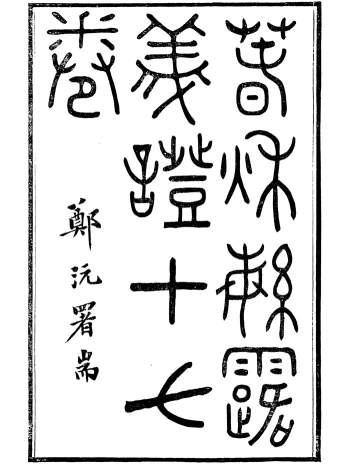 春秋繁露
義證十七
卷
鄭沅署耑